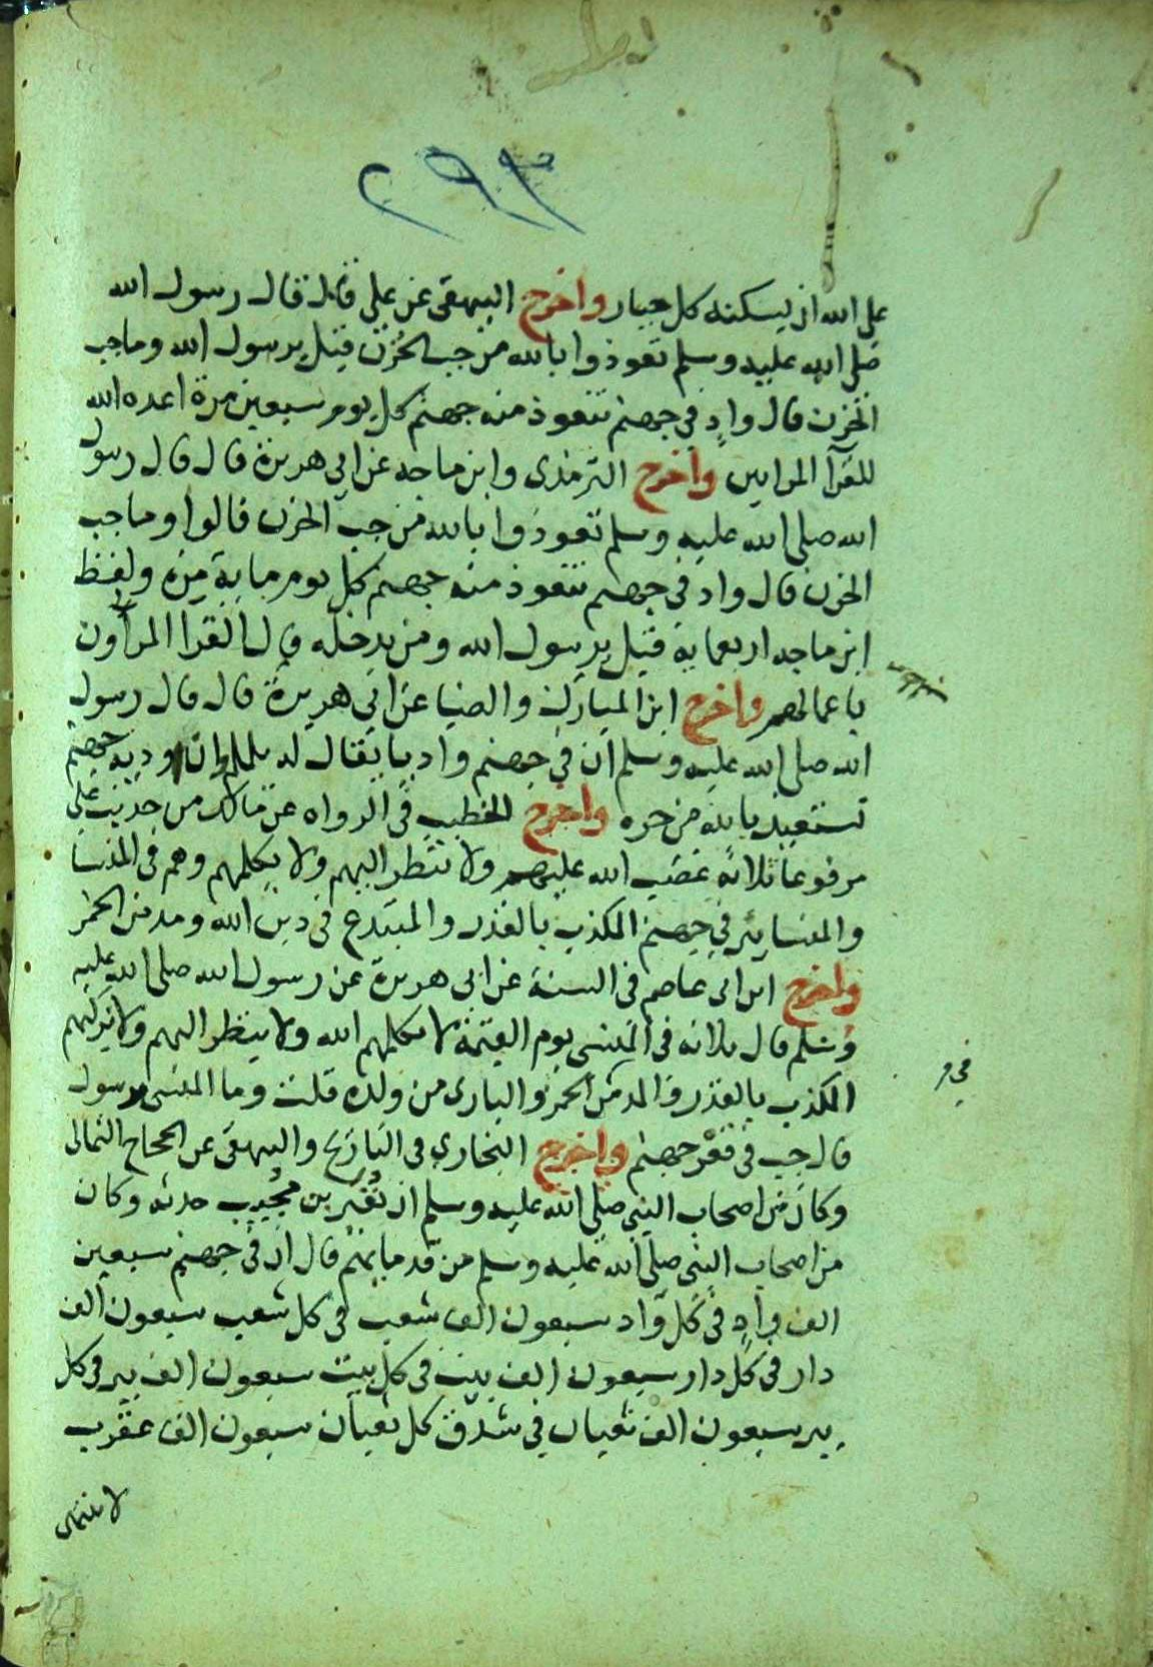 ٢٩٣
على الله ان يسكنه كل جبار واخرج البيهقى عن على قال قال رسول الله
صلى الله عليه وسلم تعوذوا بالله من جب الحزن قيل يرسول الله وما جب
الحزن قال وادٍ فى جهنم تتعوذ منه جهنم كل يوم سبعين مرة اعده الله
للقرآ المرايين واخرج الترمذى وابن ماجه عن ابى هريرة قال قال رسول
الله صلى الله عليه وسلم تعوذوا بالله من جب الحزن قالوا وما جب
الحزن قال واد فى جهنم تتعوذ منه جهنم كل يوم ماية مرة ولفظ
ابن ماجه اربعماية قيل يرسول الله ومن يدخله قال القرا المراون
باعمالهم واخرج ابن المبارك والضيا عن ابى هريرة قال قال رسول
الله صلى الله عليه وسلم ان فى جهنم واديا يقال له يلملم وان اودية جهنم
تستعيذ بالله من حره واخرج الخطيب فى الرواه عن مالك من حديث على
مرفوعا ثلاثة غضب الله عليهم ولا ينظر اليهم ولا يكلمهم وهم فى المنسا
والمنسا بير فى جهنم المكذب بالقدر والمبتدع فى دين الله ومدمن الخمر
واخرج ابن ابى عاصم فى السنة عن ابى هريرة عن رسول الله صلى الله عليه
وسلم قال ثلاثة فى المنسى يوم القيمة لا يكلمهم الله ولا ينظر اليهم ولا يزكيهم
المكذب بالقدر والمدمن الخمر والبارى من ولده قلت وما المنسى يرسول
قال جب فى قعر جهنم واخرج البخارى فى التاريخ والبيهقى عن الحجاج الثمالى
وكان من اصحاب النبى صلى الله عليه وسلم ان نُفَير بن مُجِيب حدثه وكان
من اصحاب النبى صلى الله عليه وسلم من قدمايهم قال ان فى جهنم سبعين
الف وادٍ فى كل واد سبعون الف شعب فى كل شعب سبعون الف
دار فى كل دار سبعون الف بيت فى كل بيت سبعون الف بير فى كل
بير سبعون الف ثعبان فى شدق كل ثعبان سبعون الف عقرب
لا ينتهى